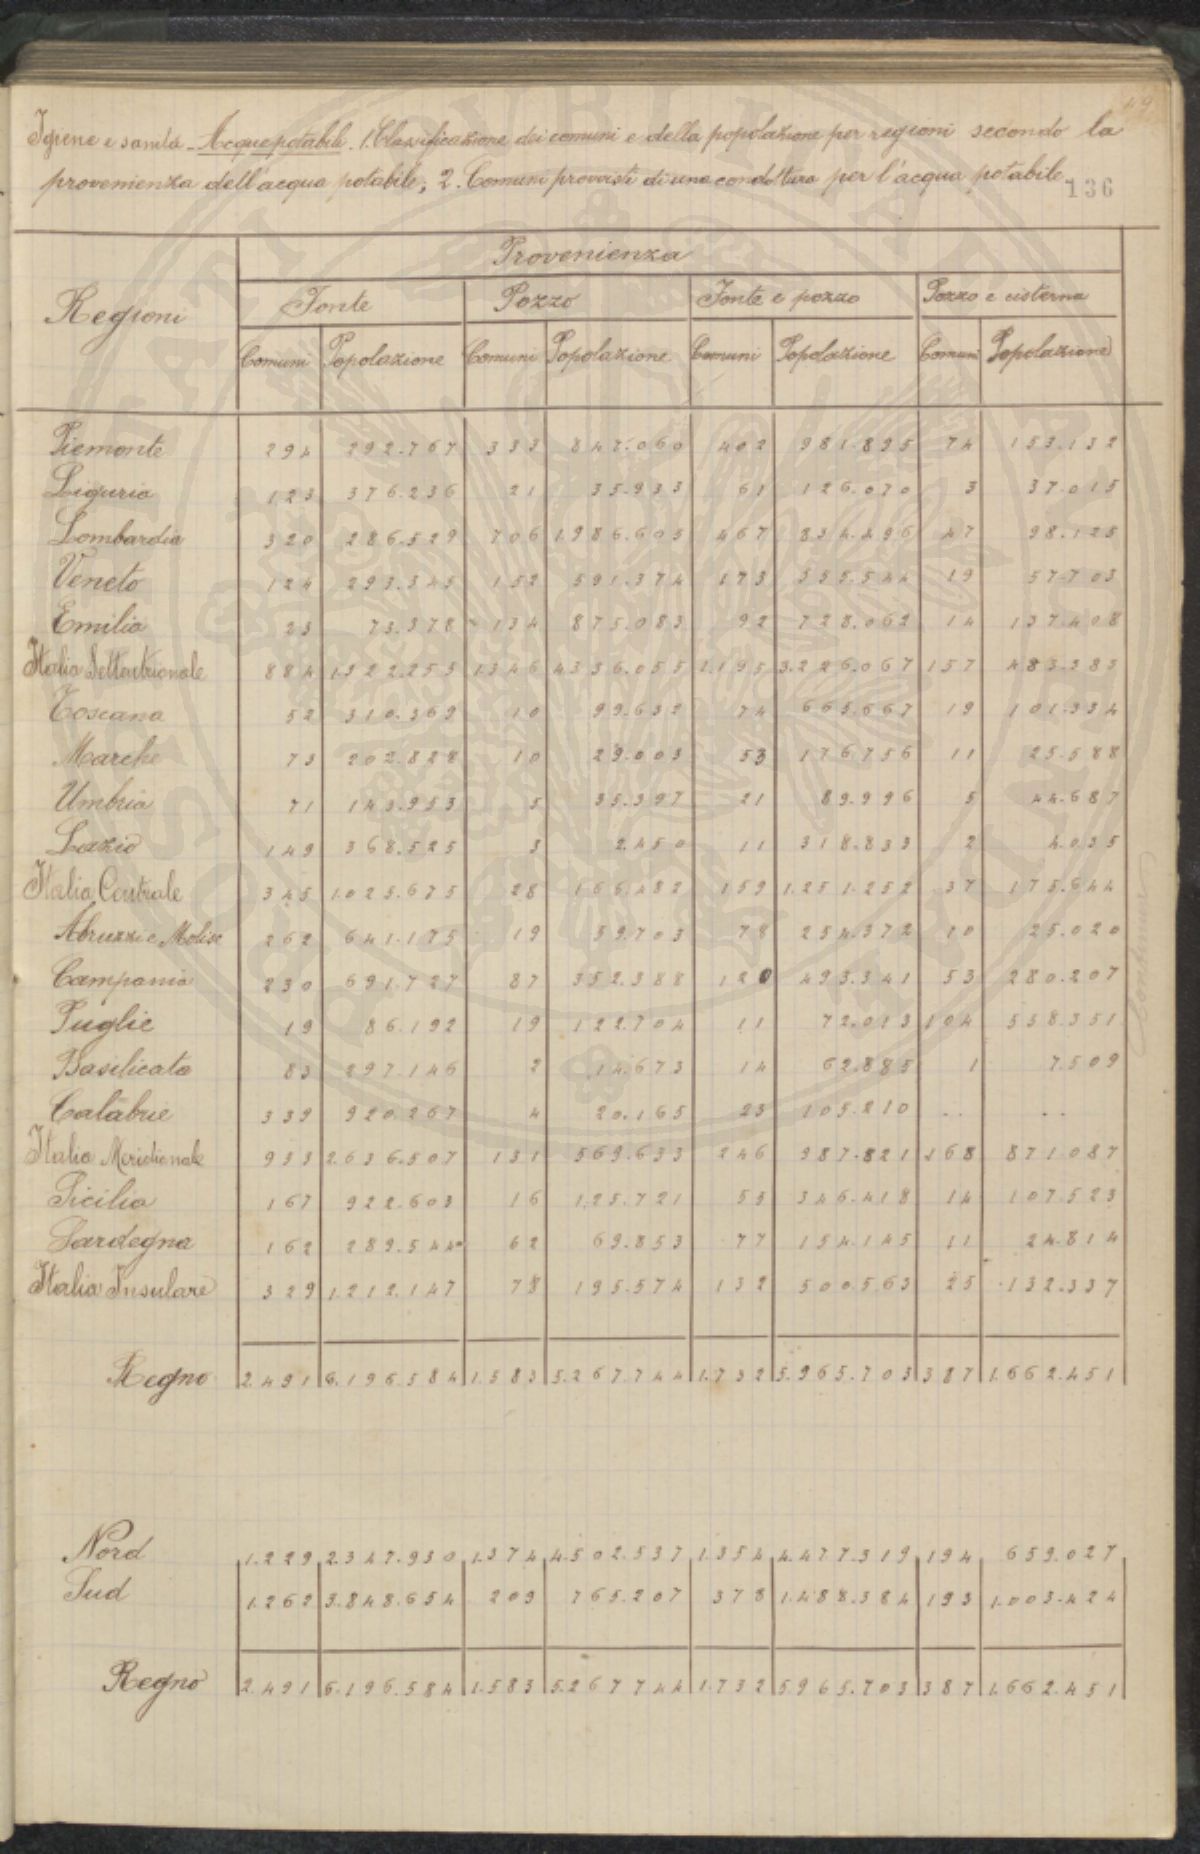 49
Igiene e sanità - Acque potabili. 1. Classificazione dei comuni e della popolazione per regioni secondo la
provenienza dell'acqua potabile; 2. Comuni provvisti di una conduttura per l'acqua potabile.
136
Provenienza
Regioni Fonte Pozzo Fonte e pozzo Pozzo e cisterna
Comuni Popolazione Comuni Popolazione Comuni Popolazione Comuni Popolazione
Piemonte 294 292.767 333 847.060 402 981.895 74 153.132
Liguria 123 376.236 21 35.933 61 126.070 3 37.015
Lombardia 320 286.529 706 1.986.605 467 834.496 47 98.125
Veneto 124 293.345 152 591.374 173 555.544 19 57.703
Emilia 23 73.378 134 875.083 92 728.062 14 137.408
Italia Settentrionale 884 1.322.255 1.346 4.336.055 1.195 3.226.067 157 483.383
Toscana 52 310.369 10 99.632 74 665.667 19 101.334
Marche 73 202.828 10 29.003 53 176.756 11 25.588
Umbria 71 143.953 5 35.397 21 89.996 5 44.687
Lazio 149 368.525 3 2.450 11 318.833 2 4.035
Italia Centrale 345 1.025.675 28 166.482 159 1.251.252 37 175.644
Abruzzi e Molise 262 641.175 19 59.703 78 254.372 10 25.020
Campania 230 691.727 87 352.388 120 493.341 53 280.207
Puglie 19 86.192 19 122.704 11 72.013 104 558.351
Basilicata 83 297.146 2 14.673 14 62.885 1 7.509
Calabrie 339 920.267 4 20.165 23 105.210 .. ..
Italia Meridionale 933 2.636.507 131 569.633 246 987.821 168 871.087
Sicilia 167 922.603 16 125.721 55 346.418 14 107.523
Sardegna 162 289.544 62 69.853 77 154.145 11 24.814
Italia Insulare 329 1.212.147 78 195.574 132 500.563 25 132.337
Regno 2.491 6.196.584 1.583 5.267.744 1.732 5.965.703 387 1.662.451
Nord 1.229 2.347.930 1.374 4.502.537 1.354 4.477.319 194 659.027
Sud 1.262 3.848.654 209 765.207 378 1.488.384 193 1.003.424
Regno 2.491 6.196.584 1.583 5.267.744 1.732 5.965.703 387 1.662.451